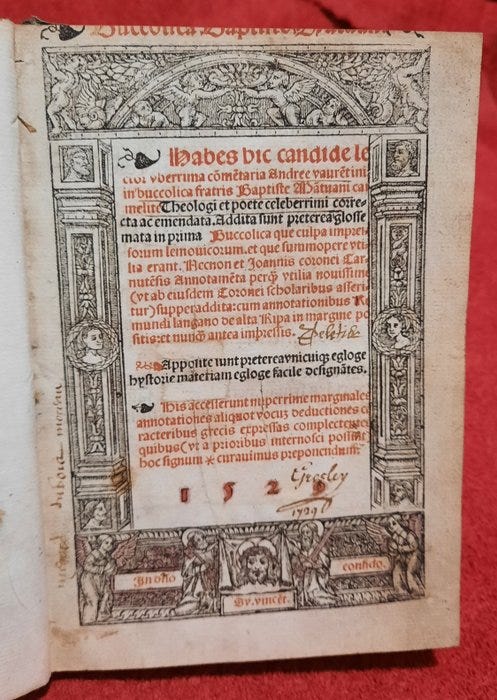 Buccolica Baptiste Mantuani
Habes hic candide le
ctor vberrima cõmẽtaria Andree vaurẽtini
in buccolica fratris Baptiste Mãtuani car
melite Theologi et poete celeberrimi corre
cta ac emendata. Addita sunt preterea glosse
mata in prima Buccolica que culpa impres
sorum lemouicorum. et que summopere vti
lia erant. Necnon et Joannis coronei Car
nutẽsis Annotamẽta perq̃ vtilia nouissime
(vt ab eiusdem Coronei scholaribus asseri
tur) supperaddita: cum annotationibus Re
mundi langano de alta Ripa in margine po
sitis: et nunq̃ antea impressis.
Apposite sunt preterea vnicuiq; egloge
hystorie materiam egloge facile designãtes.
His accesserunt nuperrime marginales
annotationes aliquot vocũ deductiones
racteribus grecis expressas complectentes
quibus (vt a prioribus internosci possint)
hoc signum curauimus preponendum.
1529
Gresley
1729
In dño
confido.
Sy. vincẽt.